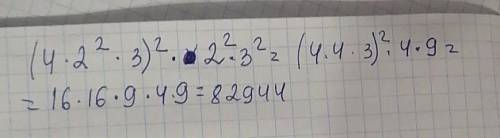 (4·2²·3)²· 2²·3² = (4·4·3)²·4·9 =
= 16·16·9·4·9 = 82944